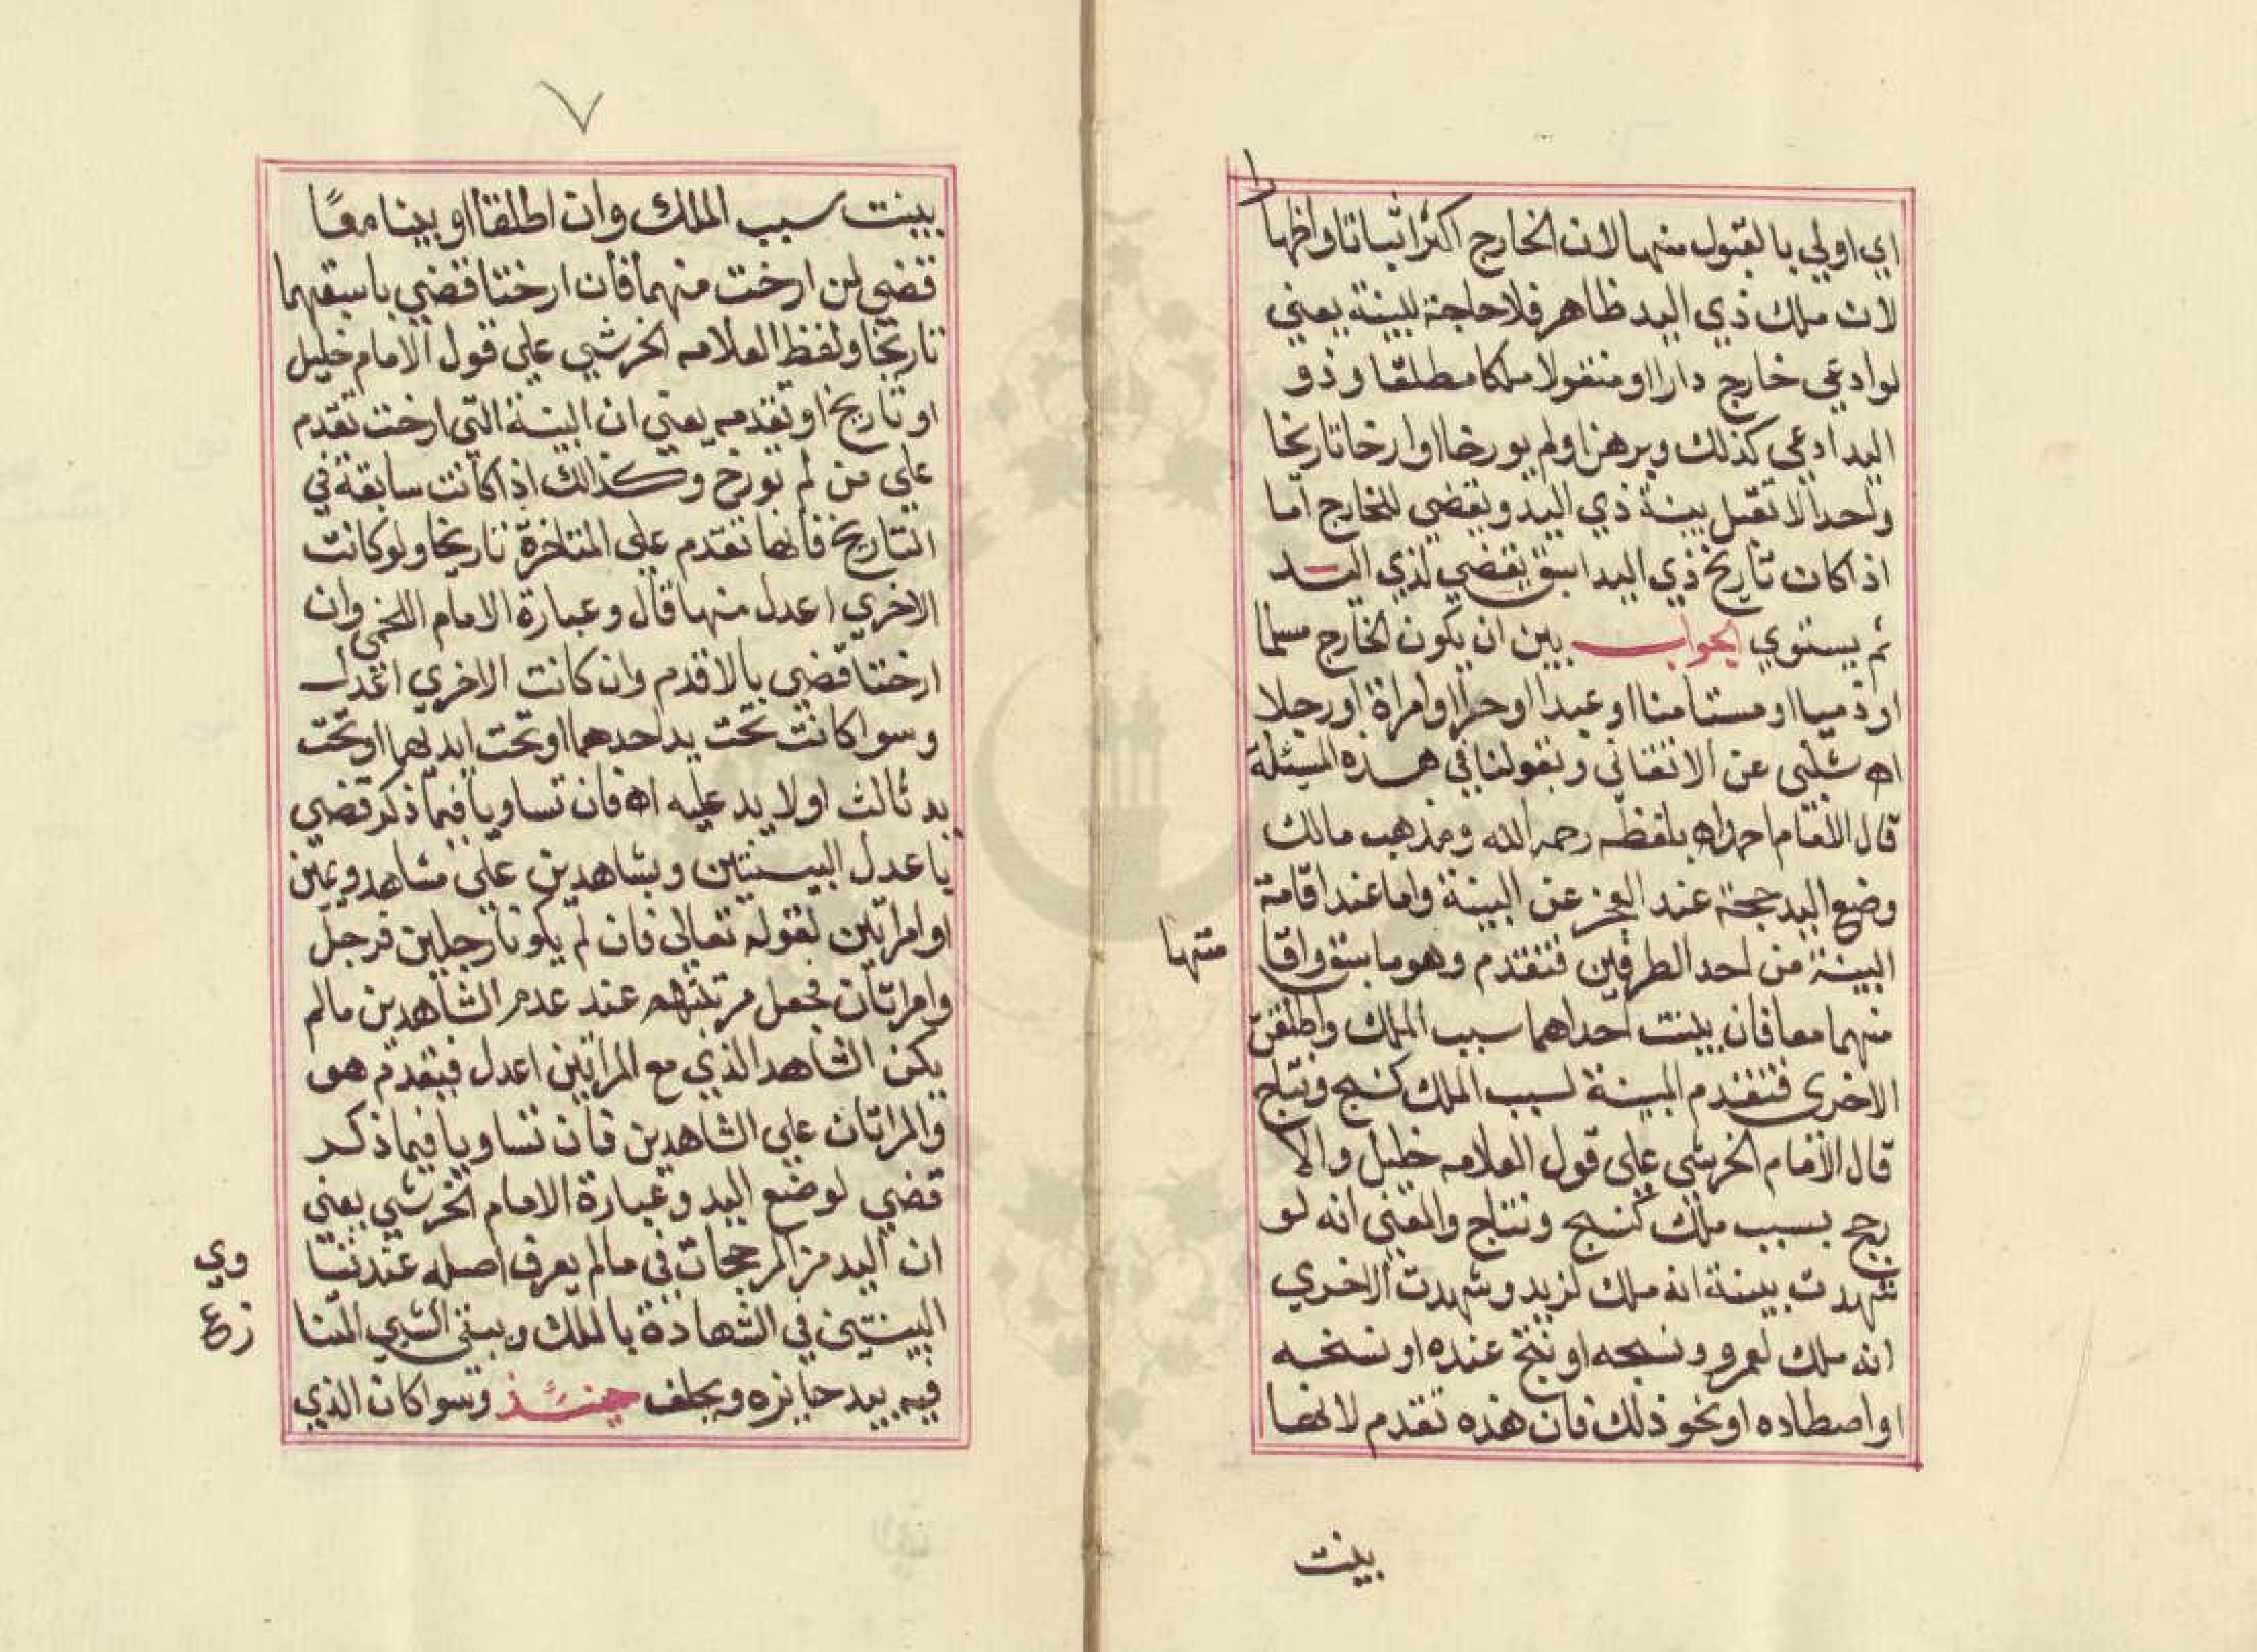 اي اولي بالقبول منها لان الخارج اكثر اثباتا واظهارا
لان ملك ذي اليد ظاهر فلا حاجة للبينة يعني
لوادعي خارج دارا او منقولا ملكا مطلقا وذو
اليد ادعي كذلك وبرهنا ولم يورخا او ارخا تاريخا
واحدا لا تقبل بينة ذي اليد ويقضي للخارج اما
اذا كان تاريخ ذي اليد اسبق يقضي لذي اليد
ثم يستوي الجواب بين ان يكون الخارج مسلما
او ذميا او مستامنا او عبدا او حرا او امراة او رجلا
اه شلبي عن الاتقاني وبقولنا في هذه المسئلة
قال الامام احمد اه بلفظه رحمه الله ومذهب مالك
وضع اليد حجة عند العجز عن البينة واما عند اقامة
البينة من احد الطرفين فتقدم وهو ما سبق واقامتها
منهما معا فان بينت احداهما سبب الملك واطلقت
الاخرى فتقدم المبينة لسبب الملك كنسج ونتاج
قال الامام الخرشي علي قول العلامه خليل والا
رجح بسبب ملك كنسج ونتاج والمعني انه لو
شهدت بينة انه ملك لزيد وشهدت الاخري
انه ملك لعمرو ونسجه او نتج عنده او نسخه
او اصطاده او نحو ذلك فان هذه تقدم لانها
بينت
٧
بينت سبب الملك وان اطلقتا او بينتا معًا
قضي لمن ارخت منهما فان ارختا قضي باسبقهما
تاريخا ولفظ العلامه الخرشي علي قول الامام خليل
او تاريخ او تقدمه يعني ان البينة التي ارخت تقدم
علي من لم تورخ وكذالك اذا كانت سابقة في
التاريخ فانها تقدم علي المتاخرة تاريخا ولو كانت
الاخري اعدل منها قال وعبارة الامام اللخمي وان
ارختا قضي بالاقدم وان كانت الاخري اعدل
وسوا كانت تحت يد احدهما او تحت ايديهما او تحت
يد ثالث او لا يد عليه اه فان تساويا فيما ذكر قضي
باعدل البينتين وبشاهدين علي شاهد ويمين
او امراتين لقوله تعالي فان لم يكونا رجلين فرجل
وامراتان فجعل مرتبتهم عند عدم الشاهدين مالم
يكن الشاهد الذي مع المراتين اعدل فيقدم هو
والمراتان علي الشاهدين فان تساويا فيما ذكر
قضي لوضع اليد وعبارة الامام الخرشي يعني
ان اليد من المرجحات في مالم يعرف اصله عند تساوي
البينتين في الشهادة بالملك ويبقي الشي المتنازع
فيه بيد حايزه ويحلف حينئذ وسوا كان الذي